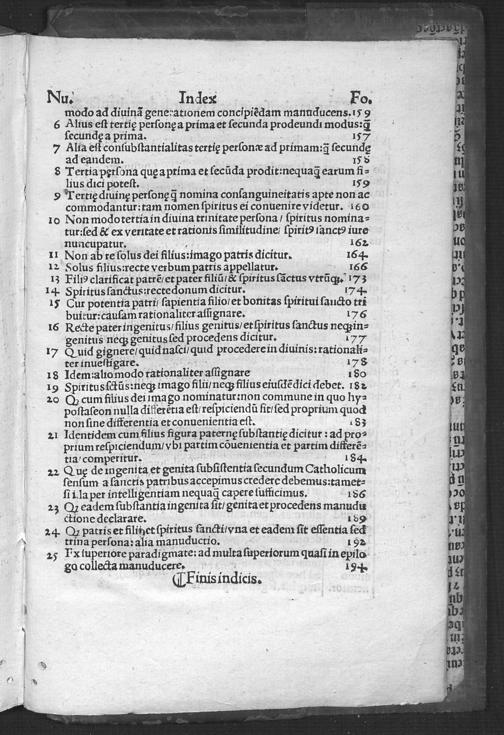 Nu. Index Fo.
modo ad diuinā generationem concipiēdam manuducens. 159
6 Alius est tertię personę a prima et secunda prodeundi modus: q̃
secundę a prima. 157
7 Alia est consubstantialitas tertię personæ ad primam: q̃ secundę
ad eandem. 158
8 Tertia persona quę a prima et secūda prodit: nequaq̃ earum fi⸗
lius dici potest. 159
9 Tertię diuinę personę q̃ nomina consanguineitatis apte non ac
commodantur: tam nomen spiritus ei conuenire videtur. 160
10 Non modo tertia in diuina trinitate persona / spiritus nomina⸗
tur: sed & ex veritate et rationis similitudine / spiritꝰ sanctꝰ iure
nuncupatur. 162
11 Non ab re solus dei filius: imago patris dicitur. 164
12 Solus filius: recte verbum patris appellatur. 166
13 Filiꝰ clarificat patrē / et pater filiū / & spiritus sāctus vtrūqꝫ. 173
14 Spiritus sanctus: recte donum dicitur. 174
15 Cur potentia patri / sapientia filio / et bonitas spiritui sancto tri
buitur: causam rationaliter assignare. 176
16 Recte pater ingenitus / filius genitus / et spiritus sanctus neqꝫ in⸗
genitus neqꝫ genitus sed procedens dicitur. 177
17 Quid gignere / quid nasci / quid procedere in diuinis: rationali⸗
ter inuestigare. 178
18 Idem alio modo rationaliter assignare 180
19 Spiritus sctūs: neqꝫ imago filii / neqꝫ filius eiusdē dici debet. 182
20 Qꝫ cum filius dei imago nominatur: non commune in quo hy⸗
postaseon nulla differētia est / respiciendū sit / sed proprium quod
non sine differentia et conuenientia est. 183
21 Identidem cum filius figura paternę substantię dicitur : ad pro⸗
prium respiciendum / vbi partim cōuenientia et partim differē⸗
tia comperitur. 184
22 Quę de ingenita et genita subsistentia secundum Catholicum
sensum a sanctis patribus accepimus credere debemus: tamet⸗
si illa per intelligentiam nequaq̃ capere sufficimus. 186
23 Qꝫ eadem substantia ingenita sit / genita et procedens manudu
ctione declarare. 189
24 Qꝫ patris et filii et spiritus sancti / vna et eadem sit essentia sed
trina persona: alia manuductio. 192
25 Ex superiore paradigmate: ad multa superiorum quasi in epilo
go collecta manuducere. 194
¶Finis indicis.